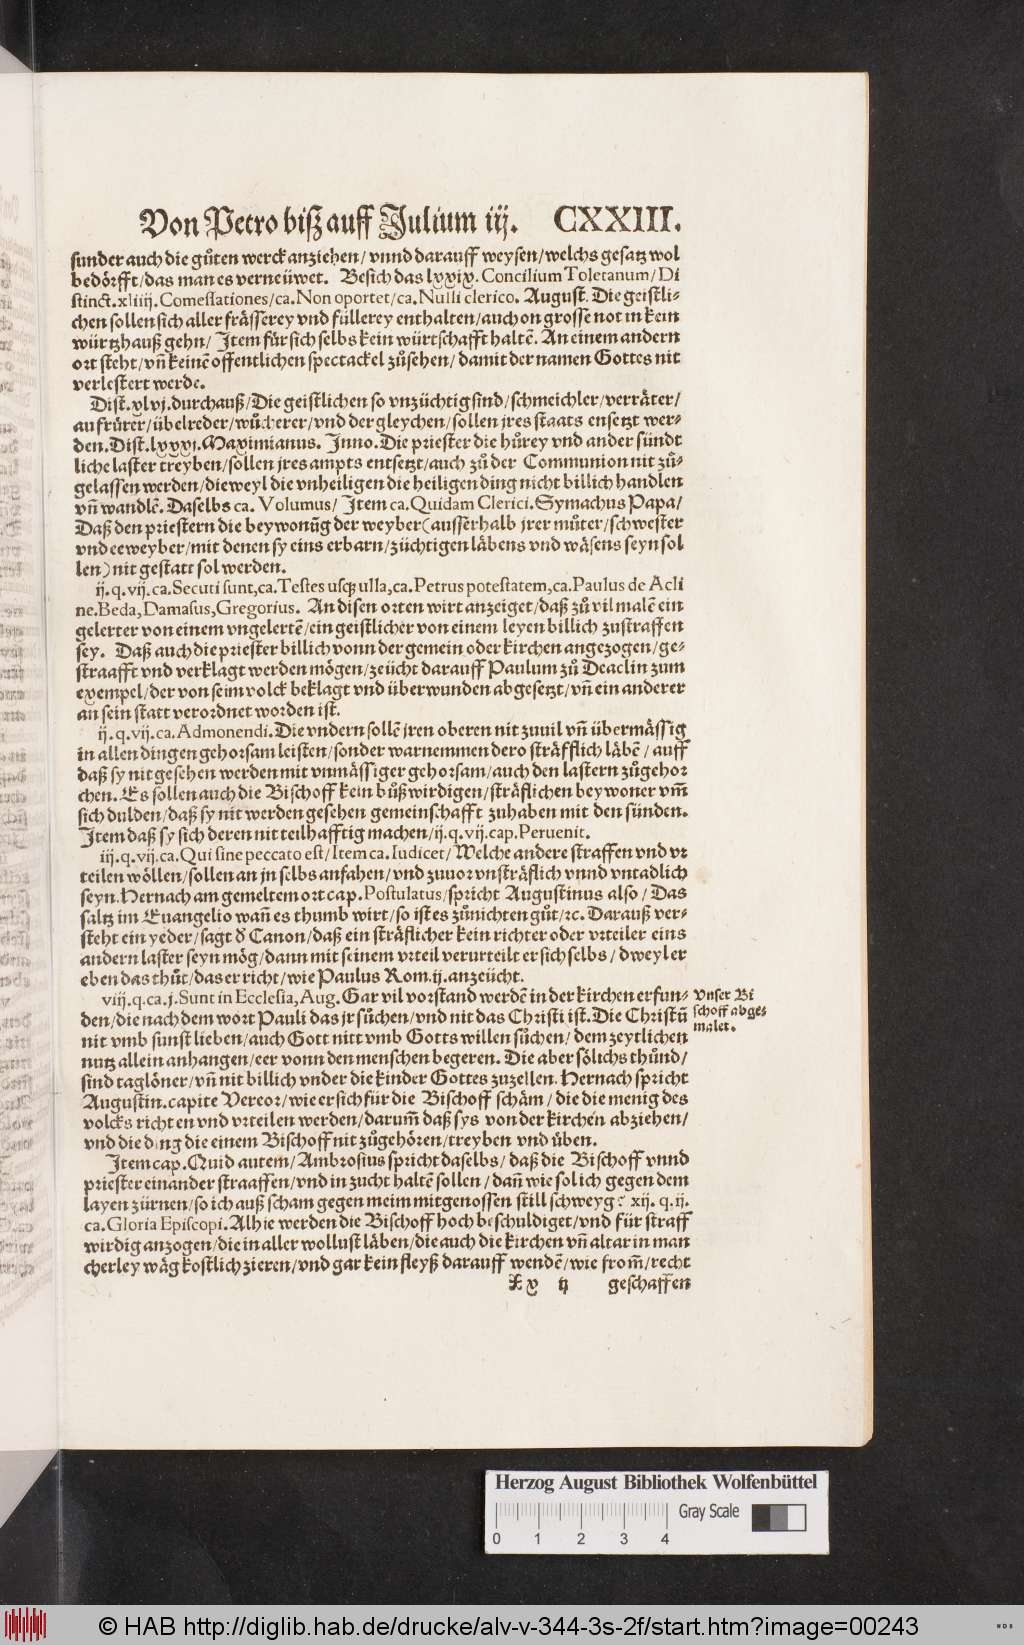 Von Petro biß auff Julium iij. CXXIII.
sunder auch die gůten werck anziehen/ vnnd darauff weysen/welchs gesatz wol
bedörfft/das man es verneüwet. Besich das lxxix. Concilium Toletanum/Di
stinct.xliiij.Comessationes/ca.Non oportet/ca.Nulli clerico. August. Die geistli-
chen sollen sich aller frässerey vnd füllerey enthalten/auch on grosse not in kein
würtzhauß gehn/ Item für sich selbs kein würtschafft haltē. An einem andern
ort steht/vñ keinē offentlichen spectackel zůsehen/ damit der namen Gottes nit
verlestert werde.
Dist.xlvj.durchauß/Die geistlichen so vnzüchtig sind/schmeichler/verräter/
aufrürer/übelreder/wůcherer/vnd der gleychen/sollen jres staats ensetzt wer-
den.Dist.lxxxj.Maximianus. Inno.Die priester die hůrey vnd ander sündt
liche laster treyben/sollen jres ampts entsetzt/auch zů der Communion nit zů-
gelassen werden/dieweyl die vnheiligen die heiligen ding nicht billich handlen
vñ wandlē. Daselbs ca. Volumus/ Item ca.Quidam Clerici.Symachus Papa/
Daß den priestern die beywonūg der weyber(ausserhalb jrer můter/schwester
vnd eeweyber/mit denen sy eins erbarn/züchtigen läbens vnd wäsens seyn sol
len)nit gestatt sol werden.
ij.q.vij.ca.Secuti sunt,ca.Testes usq; ulla,ca.Petrus potestatem,ca.Paulus de Acli
ne.Beda,Damasus,Gregorius. An disen orten wirt anzeiget/daß zů vil malē ein
gelerter von einem vngelertē/ein geistlicher von einem leyen billich zustraffen
sey. Daß auch die priester billich vonn der gemein oder kirchen angezogen/ge-
straafft vnd verklagt werden mögen/zeücht darauff Paulum zů Deaclin zum
exempel/der von seim volck beklagt vnd überwunden abgesetzt/vñ ein anderer
an sein statt verordnet worden ist.
ij.q.vij.ca.Admonendi.Die vndern sollē jren oberen nit zuuil vñ übermässig
in allen dingen gehorsam leisten/sonder warnemmen dero sträfflich läbē/ auff
daß sy nit gesehen werden mit vnmässiger gehorsam/auch den lastern zůgehor
chen. Es sollen auch die Bischoff kein bůßwirdigen/sträflichen beywoner vm̃
sich dulden/daß sy nit werden gesehen gemeinschafft zuhaben mit den sünden.
Item daß sy sich deren nit teilhafftig machen/ij.q.vij.cap.Peruenit.
iij.q.vij.ca.Qui sine peccato est/Item ca.Iudicet/Welche andere straffen vnd vr
teilen wöllen/sollen an jn selbs anfahen/vnd zuuor vnsträflich vnnd vntadlich
seyn.Hernach am gemeltem ort cap.Postulatus/spricht Augustinus also/ Das
saltz im Euangelio wañ es thumb wirt/so ist es zůnichten gůt/ꝛc. Darauß ver-
steht ein yeder/sagt ð Canon/daß ein sträflicher kein richter oder vrteiler eins
andern laster seyn mög/dann mit seinem vrteil verurteilt er sich selbs/ dweyl er
eben das thůt/das er richt/wie Paulus Rom.ij.anzeücht.
viij.q.ca.j.Sunt in Ecclesia,Aug.Gar vil vorstand werdē in der kirchen erfun-
den/die nach dem wort Pauli das jr sůchen/vnd nit das Christi ist.Die Christū
nit vmb sunst lieben/auch Gott nitt vmb Gotts willen sůchen/ dem zeytlichen
nutz allein anhangen/eer vonn den menschen begeren. Die aber sölichs thůnd/
sind taglöner/vñ nit billich vnder die kinder Gottes zuzellen. Hernach spricht
Augustin.capite Vereor/wie er sich für die Bischoff schäm/ die die menig des
volcks richten vnd vrteilen werden/darum̃ daß sys von der kirchen abziehen/
vnd die ding die einem Bischoff nit zůgehören/treyben vnd ůben.
Item cap.Quid autem/Ambrosius spricht daselbs/ daß die Bischoff vnnd
priester einander straaffen/vnd in zucht haltē sollen/ dañ wie sol ich gegen dem
layen zürnen/so ich auß scham gegen meim mitgenossen still schweyg? xij.q.ij.
ca.Gloria Episcopi.Alhie werden die Bischoff hoch beschuldiget/vnd für straff
wirdig anzogen/die in aller wollust läben/die auch die kirchen vñ altar in man
cherley wäg kostlich zieren/vnd gar kein fleyß darauff wendē/wie from̃/recht
Xx ij geschaffen
Vnser Bi
schoff abge-
malet.
Herzog August Bibliothek Wolfenbüttel
0 1 2 3 4 Gray Scale
© HAB http://diglib.hab.de/drucke/alv-v-344-3s-2f/start.htm?image=00243